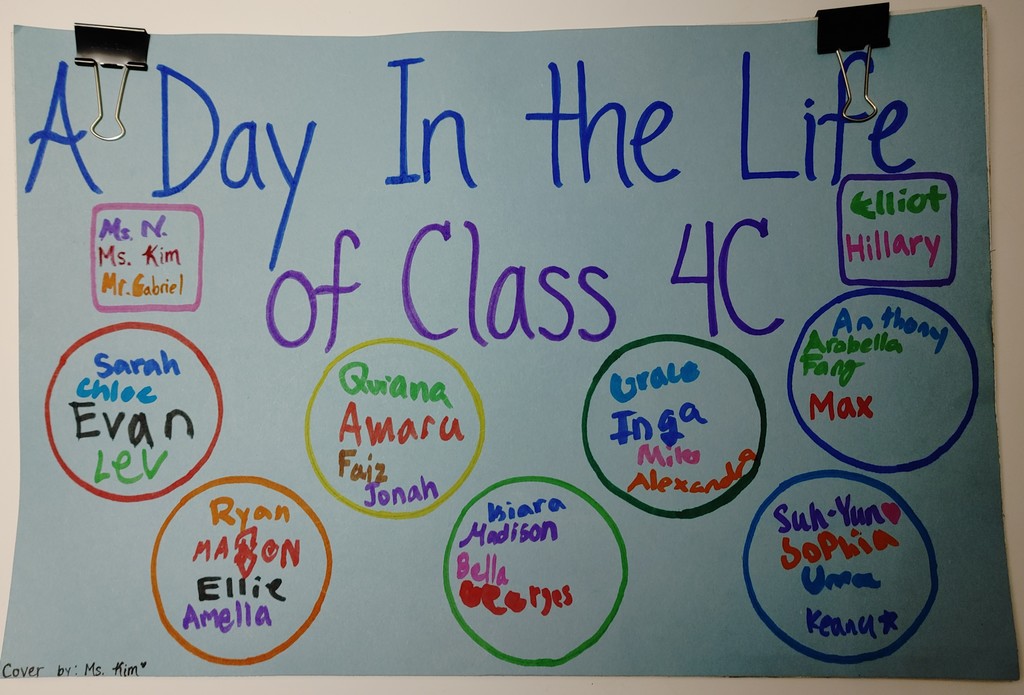 A Day In the Life
of Class 4C
Ms. N.
Ms. Kim
Mr. Gabriel
Elliot
Hillary
Sarah
Chloe
Evan
Lev
Quiana
Amaru
Faiz
Jonah
Grace
Inga
Milo
Alexandra
Anthony
Arabella
Fang
Max
Ryan
MASON
Ellie
Amelia
Kiara
Madison
Bella
Georges
Suh-Yun
Sophia
Uma
Keanu
Cover by: Ms. Kim